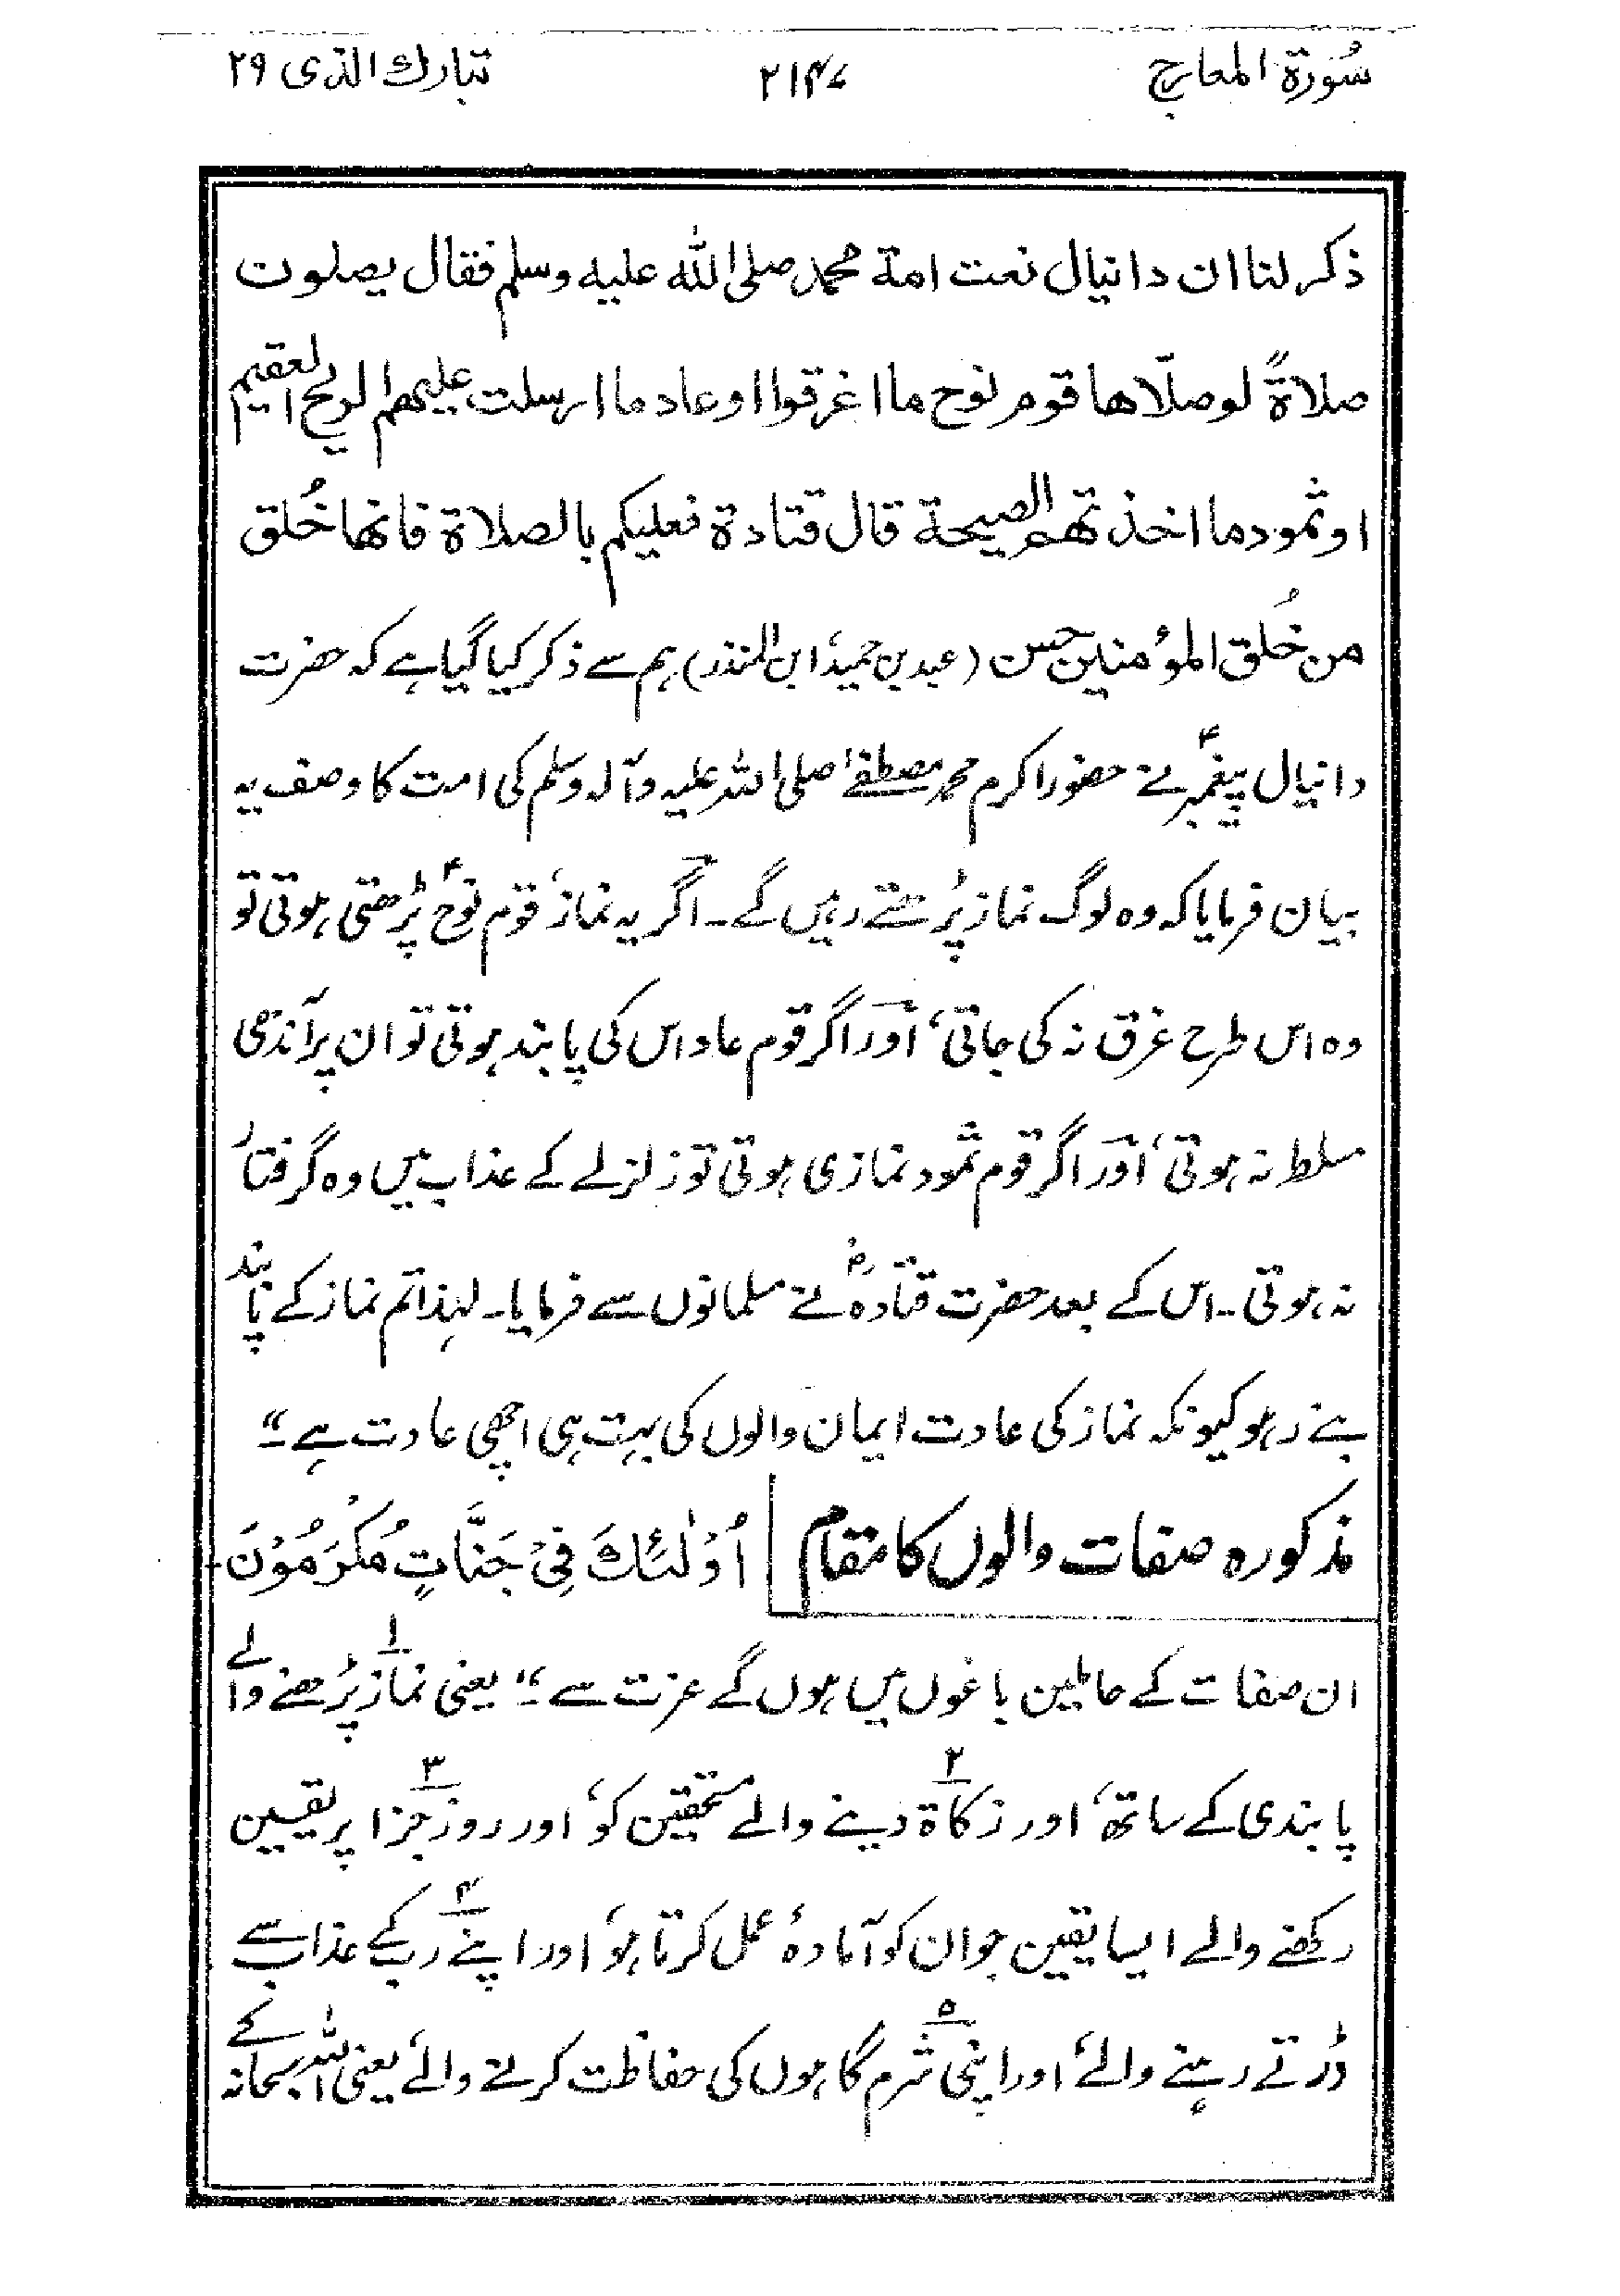 سُورة المعارج ۲۱۴۷ تبارك الذی ۲۹
ذكر لنا ان دانيال نعت امة محمد صلى الله عليه وسلم فقال يصلون
صلاةً لو صلّاها قوم نوح ما اغرقوا او عاد ما ارسلت عليهم الريح العقيم
او ثمود ما اخذتهم الصيحة قال قتادة فعليكم بالصلاة فانها خُلق
من خُلق المؤمنين حسن (عبد بن حمید، ابن المنذر) ہم سے ذکر کیا گیا ہے کہ حضرت
دانیال پیغمبرؑ نے حضور اکرم محمد مصطفےٰ صلی اللہ علیہ وآلہ وسلم کی امت کا وصف یہ
بیان فرمایا کہ وہ لوگ نماز پڑھتے رہیں گے۔ اگر یہ نماز، قوم نوحؑ پڑھتی ہوتی تو
وہ اس طرح غرق نہ کی جاتی، اور اگر قوم عاد اس کی پابند ہوتی تو ان پر آندھی
مسلط نہ ہوتی، اور اگر قوم ثمود نمازی ہوتی تو زلزلے کے عذاب میں وہ گرفتار
نہ ہوتی۔ اس کے بعد حضرت قتادہؓ نے مسلمانوں سے فرمایا۔ لہذا تم نماز کے پابند
بنے رہو کیونکہ نماز کی عادت ایمان والوں کی بہت ہی اچھی عادت ہے۔"
مذکورہ صفات والوں کا مقام اُوْلٰئِكَ فِیْ جَنَّاتٍ مُّكْرَمُوْنَ۔
ان صفات کے حاملین باغوں میں ہوں گے عزت سے۔" یعنی ۱ نماز پڑھنے والے
پابندی کے ساتھ، اور ۲ زکاة دینے والے مستحقین کو، اور ۳ روز جزا پر یقین
رکھنے والے ایسا یقین جو ان کو آمادۂ عمل کرتا ہو، اور ۴ اپنے رب کے عذاب سے
ڈرتے رہنے والے، اور ۵ اپنی شرم گاہوں کی حفاظت کرنے والے، یعنی اللہ سبحانہ کے